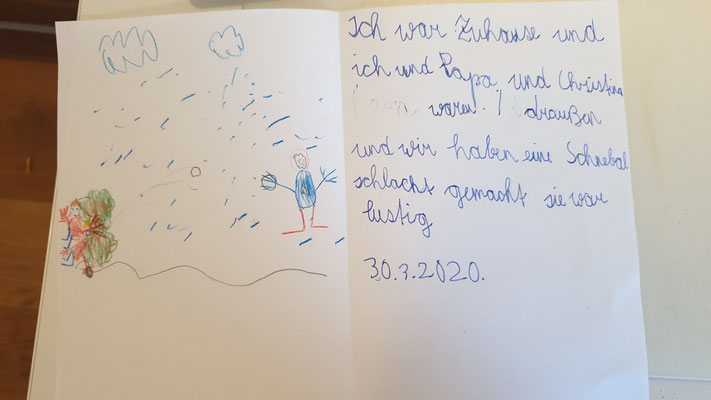 Ich war Zuhause und
ich und Papa und Christina
waren draußen
und wir haben eine Schnebal
schlacht gemacht sie war
lustig
30.3.2020.